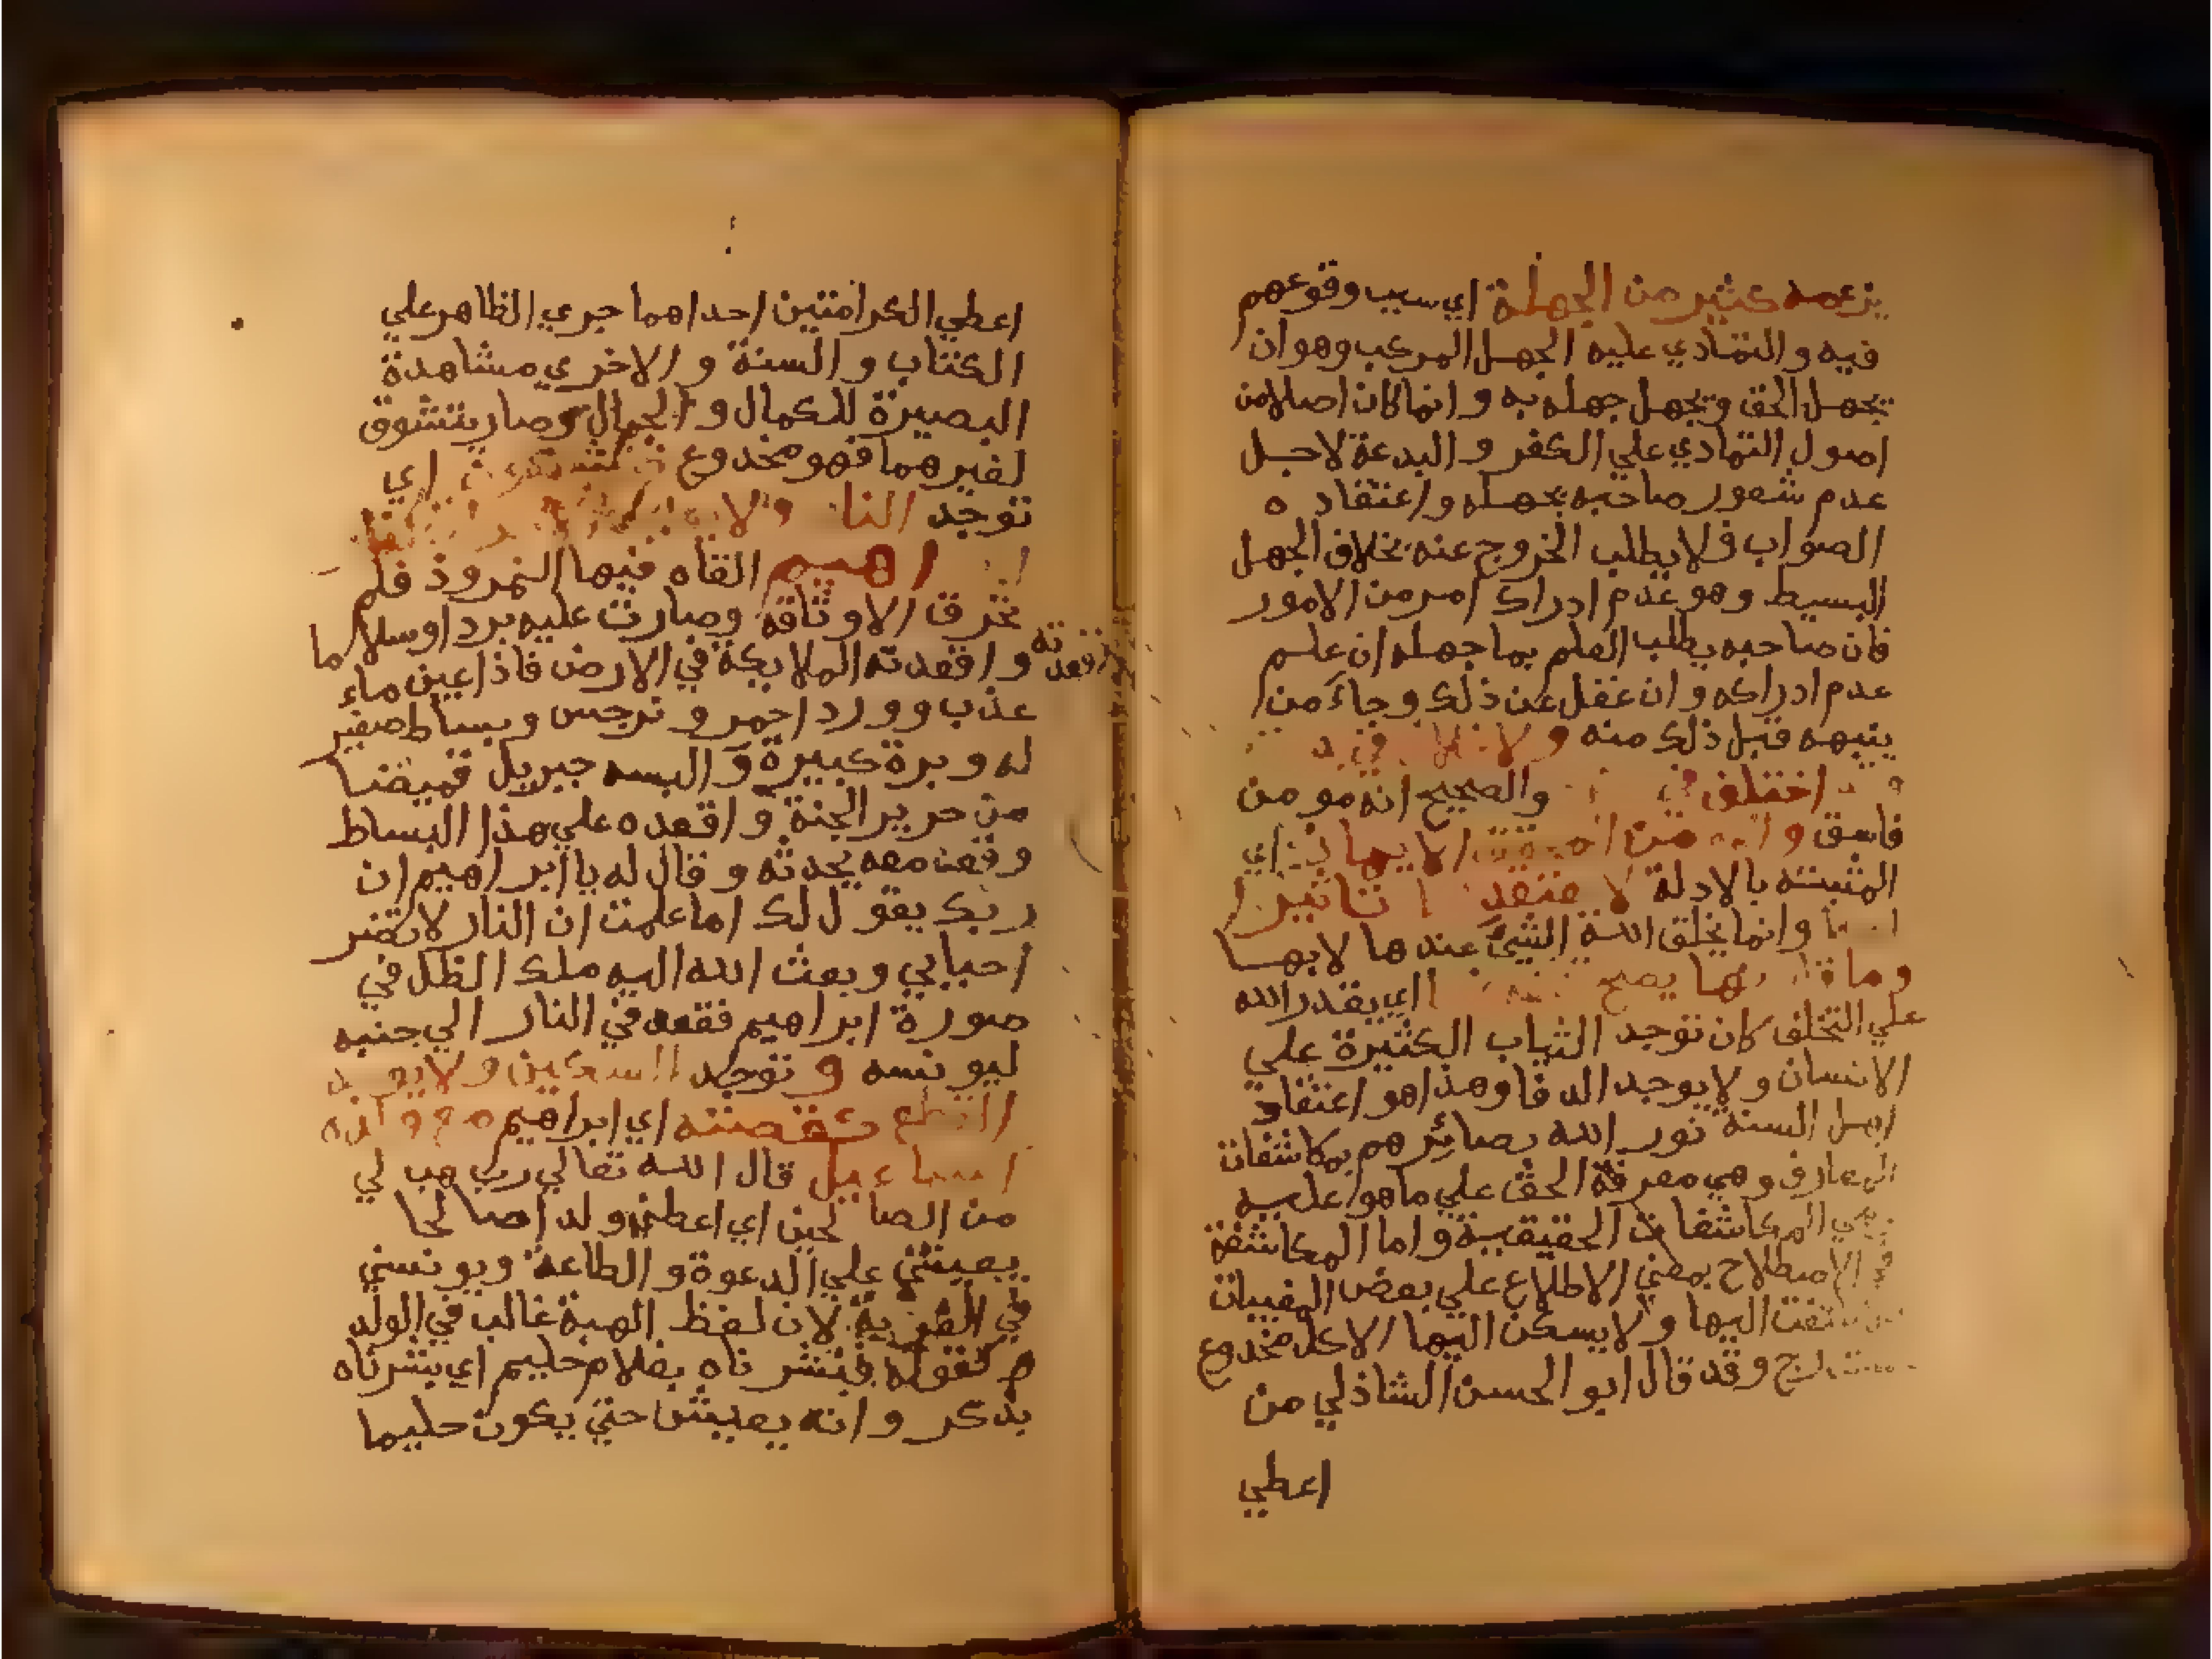 يزعمه كثير من الجهلة اي سبب وقوعهم
فيه والتمادي عليه الجهل المركب وهو ان
يجهل الحق ويجهل جهله به وانما كان اصلا من
اصول التمادي علي الكفر والبدعة لاجل
عدم شعور صاحبه بجهله واعتقاد ه
الصواب فلا يطلب الخروج عنه بخلاف الجهل
البسيط وهو عدم ادراك امر من الامور
فان صاحبه يطلب العلم بما جهله ان علم
عدم ادراكه وان غفل عن ذلك وجاء من
ينبهه قبل ذلك منه ولا
اختلف في والصحيح انه مومن
فاسق و من الايمان اي
المثبتة بالادلة لا تاثيرا
وانما يخلق الله الشيء عندها لا بها
وما بها يصح اي يقدر الله
علي التخلف كان توجد الثياب الكثيرة علي
الانسان ولا يوجد الدفا وهذا هو اعتقاد
اهل السنة نور الله بصائرهم بمكاشفات
المعارف وهي معرفة الحق علي ما هو عليه
المكاشفات الحقيقية واما المكاشفة
في الاصطلاح بمعني الاطلاع علي بعض المغيبات
اليها ولا يسكن اليها الا كل مخدوع
وقد قال ابو الحسن الشاذلي من
اعطي
اعطي الكرامتين احداهما جري الظاهر علي
الكتاب والسنة والاخري مشاهدة
البصيرة للكمال والجمال وصار يتشوق
لغيرهما فهو مخدوع اي
توجد النار ولا
القاه فيها النمروذ فلم
تحرق الا وثاقه وصارت عليه بردا وسلاما
واقعدته الملايكة في الارض فاذا عين ماء
عذب وورد احمر ونرجس وبساط صغير
له وبرة كبيرة والبسه جبريل قميصا
من حرير الجنة واقعده علي هذا البساط
وقعد معه يحدثه وقال له يا ابراهيم ان
ربك يقول لك اما علمت ان النار لا تضر
احبابي وبعث الله اليه ملك الظل في
صورة ابراهيم فقعد في النار الي جنبه
ليونسه وتوجد السكين ولا يوجد
القطع كقصته اي ابراهيم مع ولده
اسماعيل قال الله تعالي رب هب لي
من الصالحين اي اعطني ولدا صالحا
يعينني علي الدعوة والطاعة ويونسني
في الغربة لان لفظ الهبة غالب في الولد
كقوله فبشرناه بغلام حليم اي بشرناه
بذكر وانه يعيش حتي يكون حليما